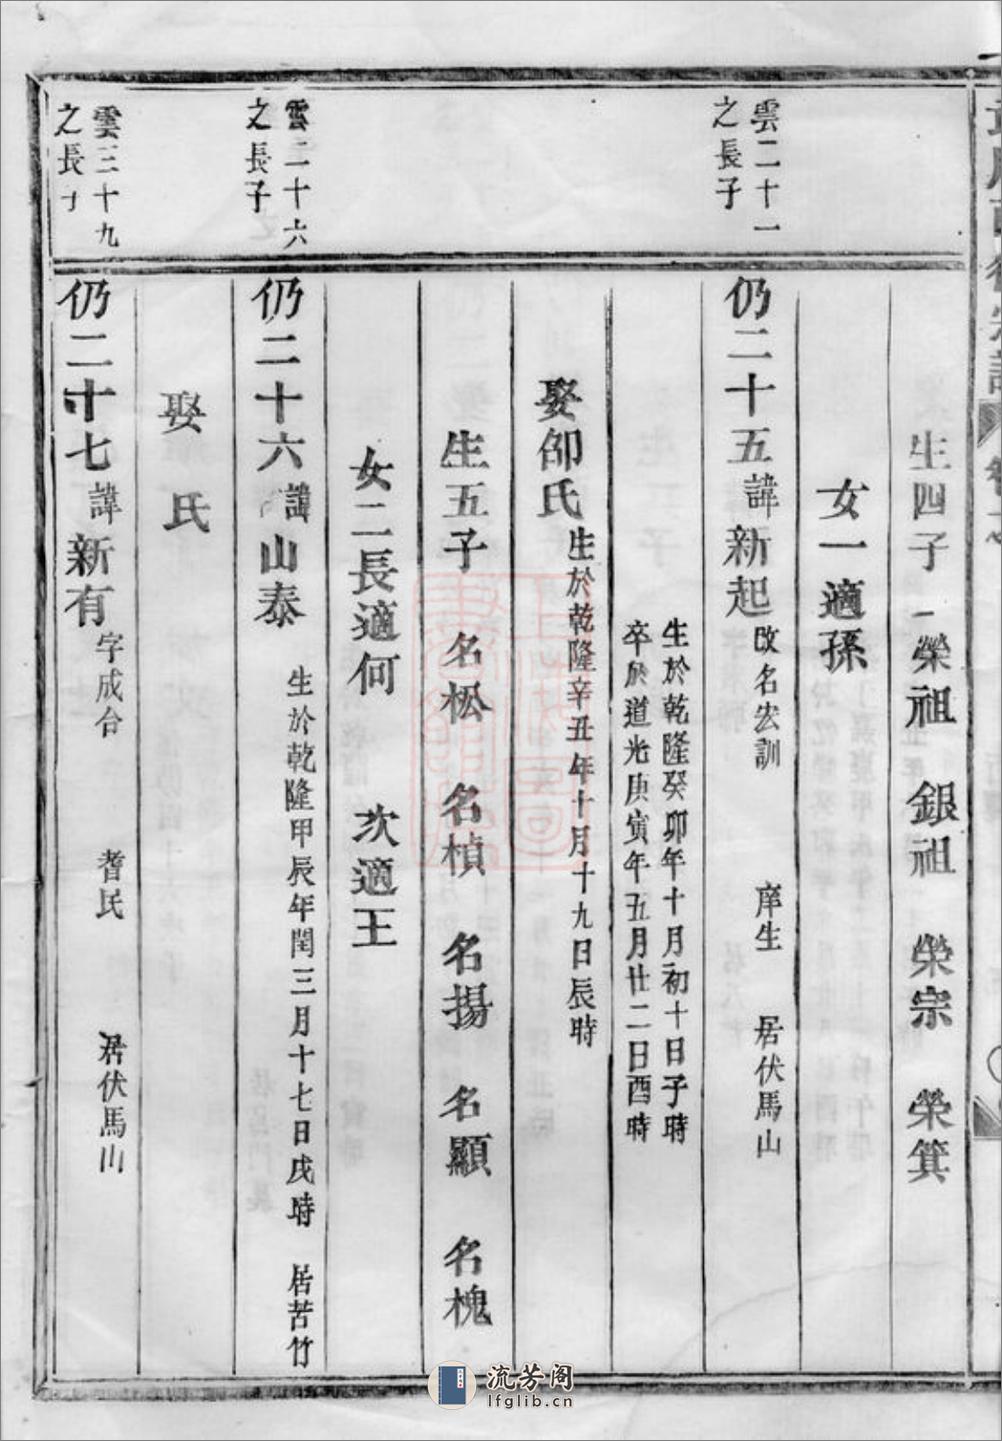 生四子 榮祖 銀祖 榮宗 榮箕
女一適孫
雲二十一
之長子
仍二十五諱新起 改名宏訓 庠生 居伏馬山
生於乾隆癸卯年十月初十日子時
卒於道光庚寅年五月廿二日酉時
娶邵氏 生於乾隆辛丑年十月十九日辰時
生五子 名松 名楨 名揚 名顯 名槐
女二長適何 次適王
雲二十六
之長子
仍二十六諱山泰 生於乾隆甲辰年閏三月十七日戌時 居苦竹
娶 氏
雲三十九
之長子
仍二十七諱新有 字成台 耆民 居伏馬山
流芳阁
lfglib.cn